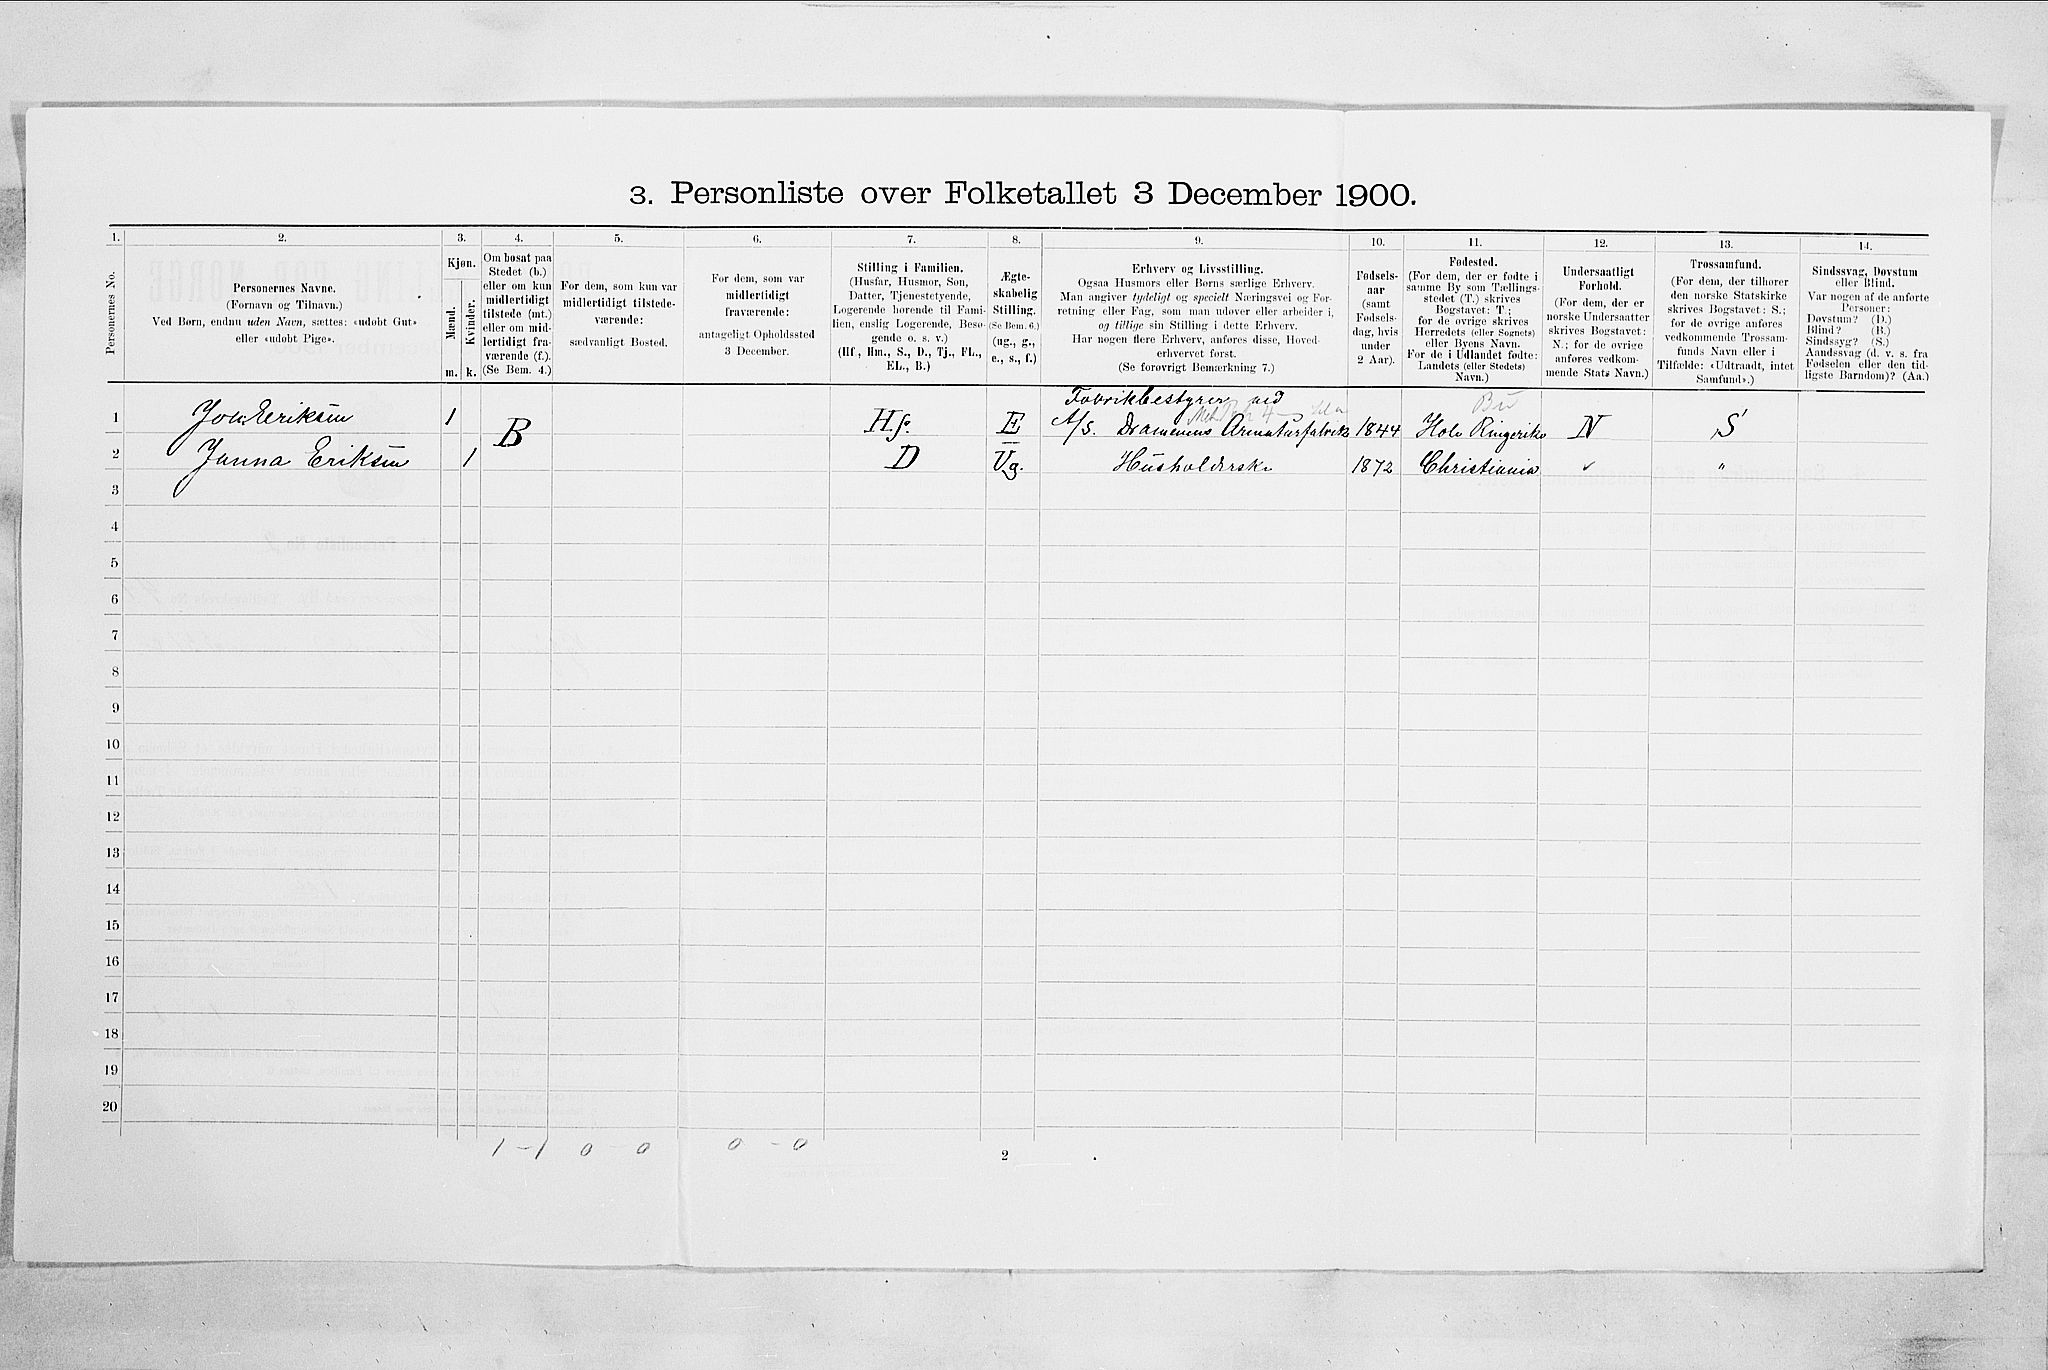 3. Personliste over Folketallet 3 December 1900.
1. 2. 3. 4. 5. 6. 7. 8. 9. 10. 11. 12. 13. 14.
Personernes No.
Personernes Navne.
(Fornavn og Tilnavn.)
Ved Børn, endnu uden Navn, sættes: «udøbt Gut»
eller «udøbt Pige».
Kjøn.
Mænd.
Kvinder.
m. k.
Om bosat paa
Stedet (b.)
eller om kun
midlertidigt
tilstede (mt.)
eller om mid-
lertidigt fra-
værende (f.).
(Se Bem. 4.)
For dem, som kun var
midlertidigt tilstede-
værende:
sædvanligt Bosted.
For dem, som var
midlertidigt
fraværende:
antageligt Opholdssted
3 December.
Stilling i Familien.
(Husfar, Husmor, Søn,
Datter, Tjenestetyende,
Logerende hørende til Fami-
lien, enslig Logerende, Besø-
gende o. s. v.)
(Hf., Hm., S., D., Tj., FL.,
EL., B.)
Ægte-
skabelig
Stilling.
(Se Bem. 6.)
(ug., g.,
e., s., f.)
Erhverv og Livsstilling.
Ogsaa Husmors eller Børns særlige Erhverv.
Man angiver tydeligt og specielt Næringsvei og For-
retning eller Fag, som man udøver eller arbeider i,
og tillige sin Stilling i dette Erhverv.
Har nogen flere Erhverv, anføres disse, Hoved-
erhvervet først.
(Se forøvrigt Bemærkning 7.)
Fødsels-
aar
(samt
Fødsels-
dag, hvis
under
2 Aar).
Fødested.
(For dem, der er fødte i
samme By som Tællings-
stedet (T.) skrives
Bogstavet: T.;
for de øvrige skrives
Herredets (eller Sognets)
eller Byens Navn.
For de i Udlandet fødte:
Landets (eller Stedets)
Navn.)
Undersaatligt
Forhold.
(For dem, der er
norske Undersaatter
skrives Bogstavet:
N.; for de øvrige
anføres vedkom-
mende Stats Navn.)
Trossamfund.
(For dem, der tilhører
den norske Statskirke
skrives Bogstavet: S.;
for de øvrige anføres
vedkommende Trossam-
funds Navn eller i
Tilfælde: «Udtraadt, intet
Samfund».)
Sindssvag, Døvstum
eller Blind.
Var nogen af de anførte
Personer:
Døvstum? (D.)
Blind? (B.)
Sindssyg? (S.)
Aandssvag (d. v. s. fra
Fødselen eller den tid-
ligste Barndom)? (Aa.)
Fabrikbestyrer ved
1 Joh. Eriksen 1 B Hf. E A/S. Dramenens Armaturfabrik 1844 Hole Ringerike N S
2 Janna Eriksen 1 D Ug. Husholderske 1872 Christiania " "
3
4
5
6
7
8
9
10
11
12
13
14
15
16
17
18
19
20
1 - 1 0 - 0 0 - 0
2